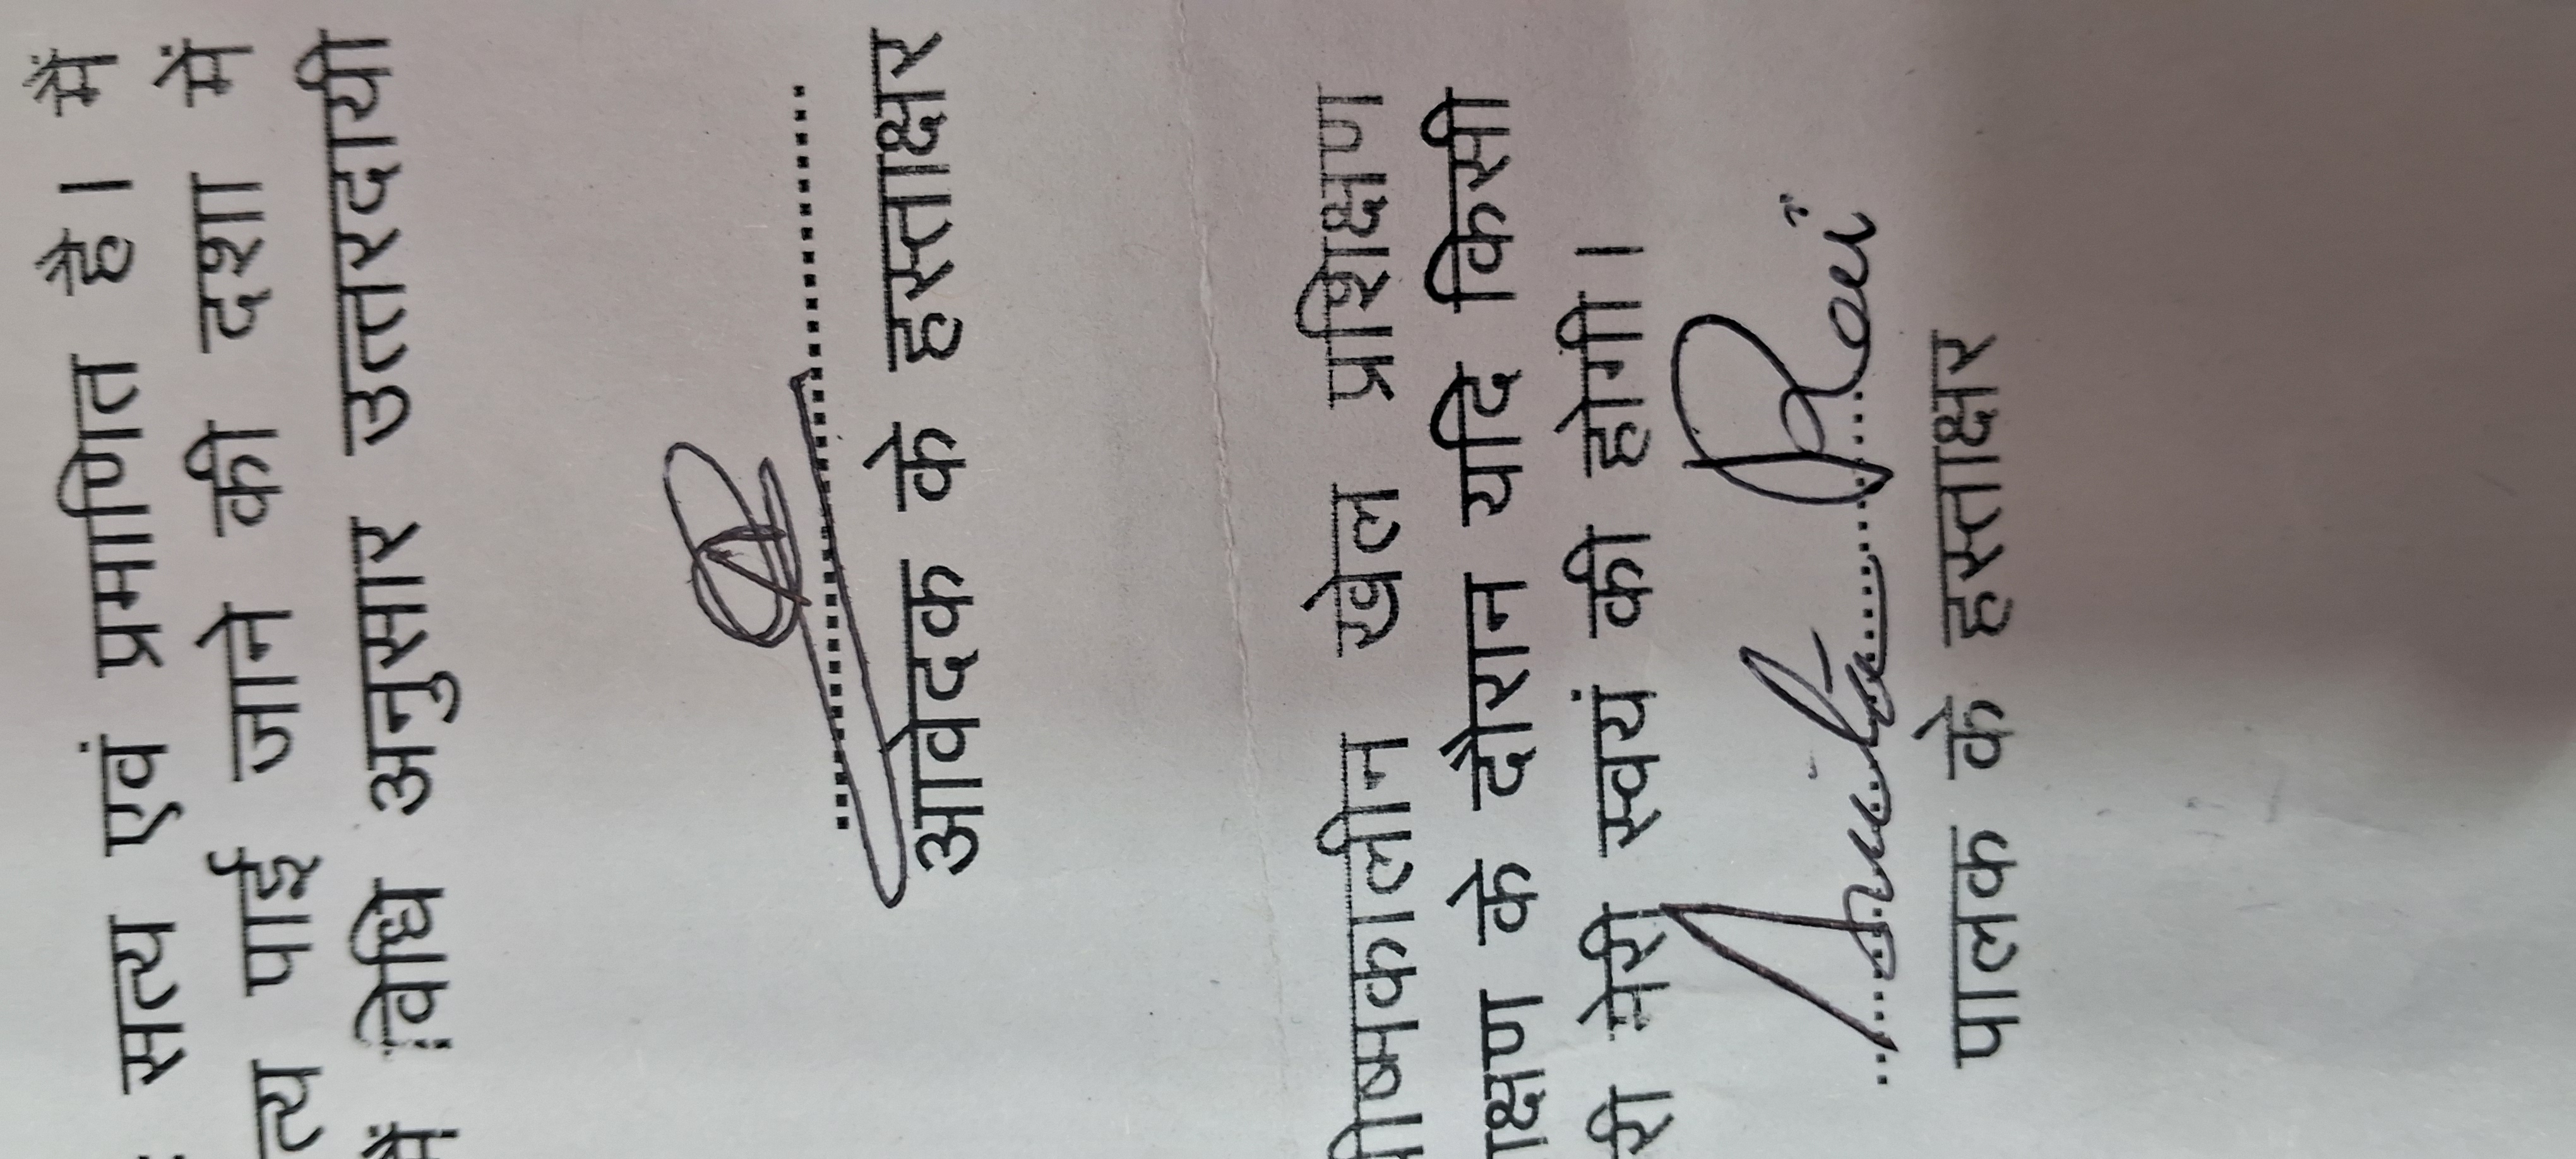 सत्य एवं प्रमाणित है। मैं
त्य पाई जाने की दशा में
में विधि अनुसार उत्तरदायी
आवेदक के हस्ताक्षर
ीष्मकालीन खेल प्रशिक्षण
क्षण के दौरान यदि किसी
री मेरी स्वयं की होगी।
Rai
पालक के हस्ताक्षर